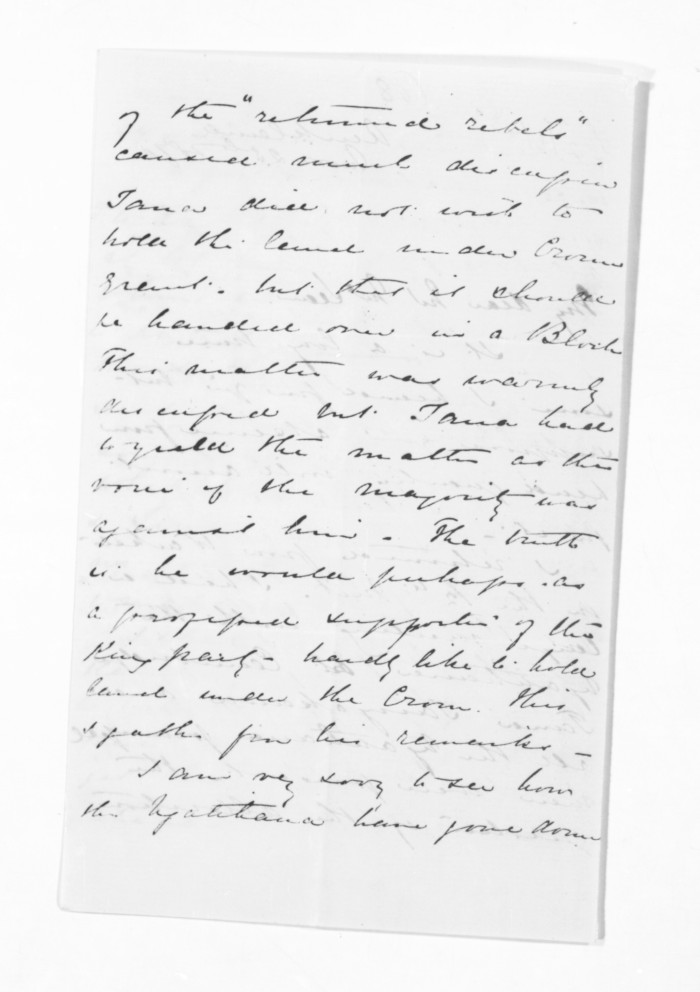 of the "returned rebels"
caused much discussion
Tana did not wish to
hold the land under Crown
Grant. but that it should
be handed over in a Block
This matter was warmly
discussed but Tana had
to yield the matter as the
voice of the majority was
against him. The truth
is he would perhaps as
a professed supporter of the
King party - hardly like to hold
land under the Crown. This
I gather from his remarks -
I am very sorry to see how
the Ngatihaua have gone down